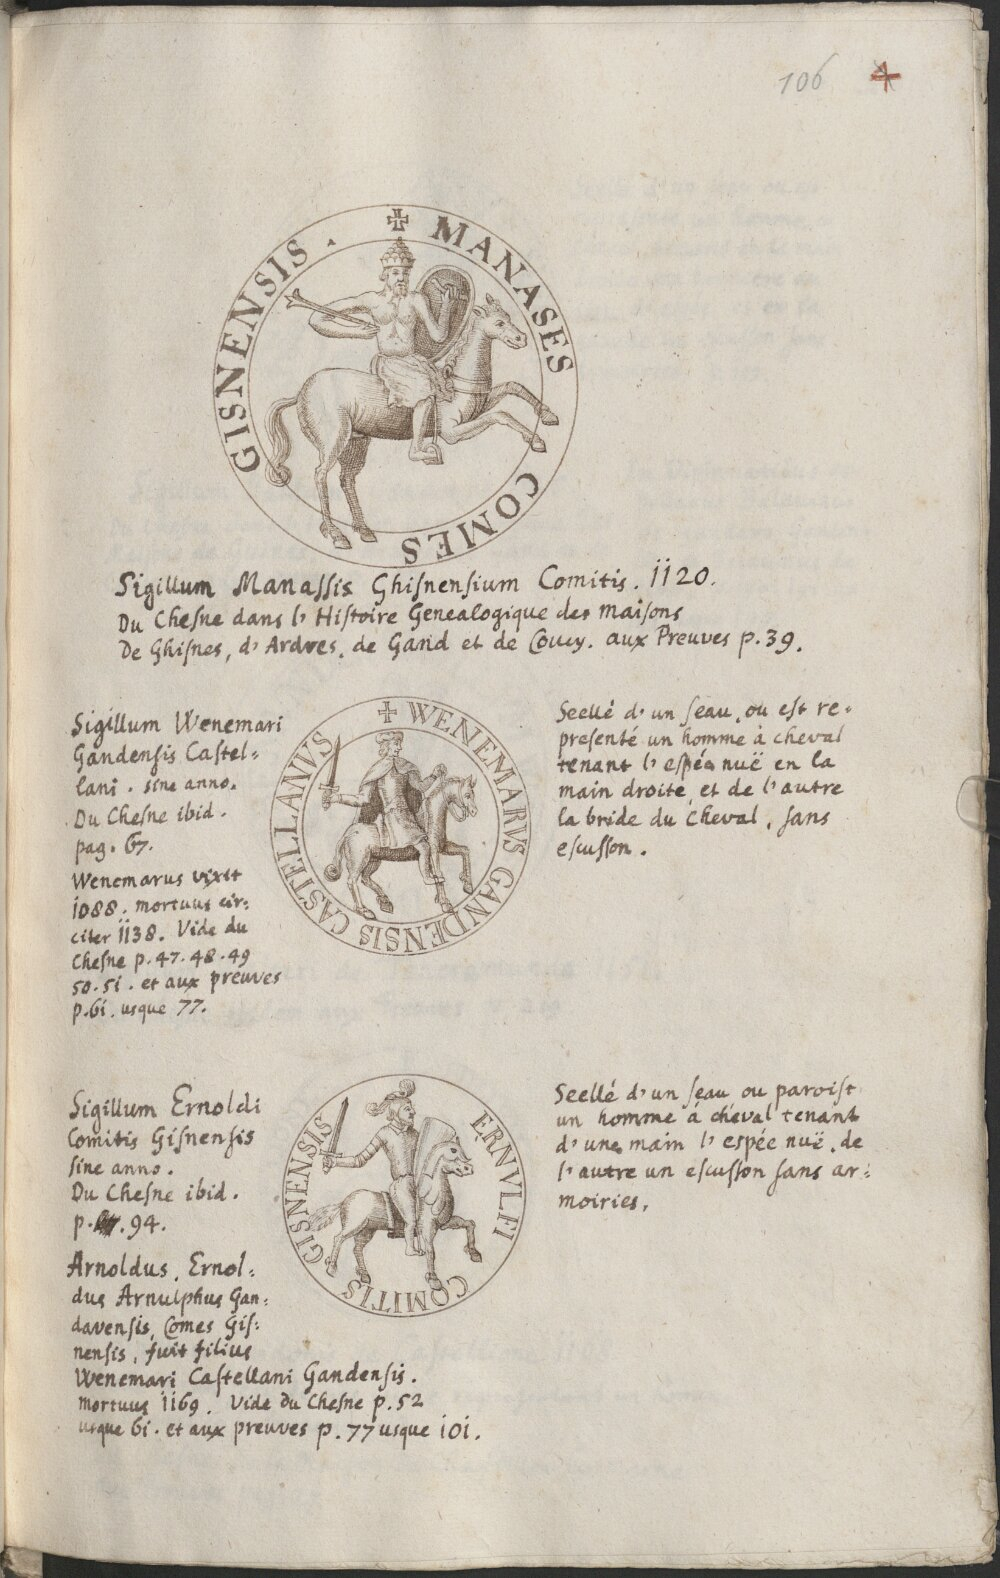 106
✠ MANASES COMES GISNENSIS .
Sigillum Manassis Ghisnensium Comitis. 1120.
Du Chesne dans l'Histoire Genealogique des maisons
De Ghisnes, d'Ardres, de Gand et de Coucy. aux Preuves p.39.
Sigillum Wenemari
Gandensis Castel:
lani. sine anno.
Du Chesne ibid.
pag. 67.
Wenemarus vixit
1088. mortuus cir:
citer 1138. Vide du
Chesne p.47.48.49
50.51. et aux preuves
p.61. usque 77.
+ WENEMARVS GANDENSIS CASTELLANVS
Seellé d'un seau, ou est re:
presenté un homme à cheval
tenant l'espée nuë en la
main droite, et de l'autre
la bride du cheval, sans
escusson.
Sigillum Ernoldi
Comitis Gisnensis
sine anno.
Du Chesne ibid.
p. 94.
Arnoldus, Ernol:
dus Arnulphus Gan:
davensis, Comes Gis:
nensis, fuit filius
Wenemari Castellani Gandensis.
mortuus 1169. Vide du Chesne p.52
usque 61. et aux preuves p.77 usque 101.
ERNVLFI COMITIS GISNENSIS
Seellé d'un seau ou paroist
un homme à cheval tenant
d'une main l'espée nuë, de
l'autre un escusson sans ar:
moiries.